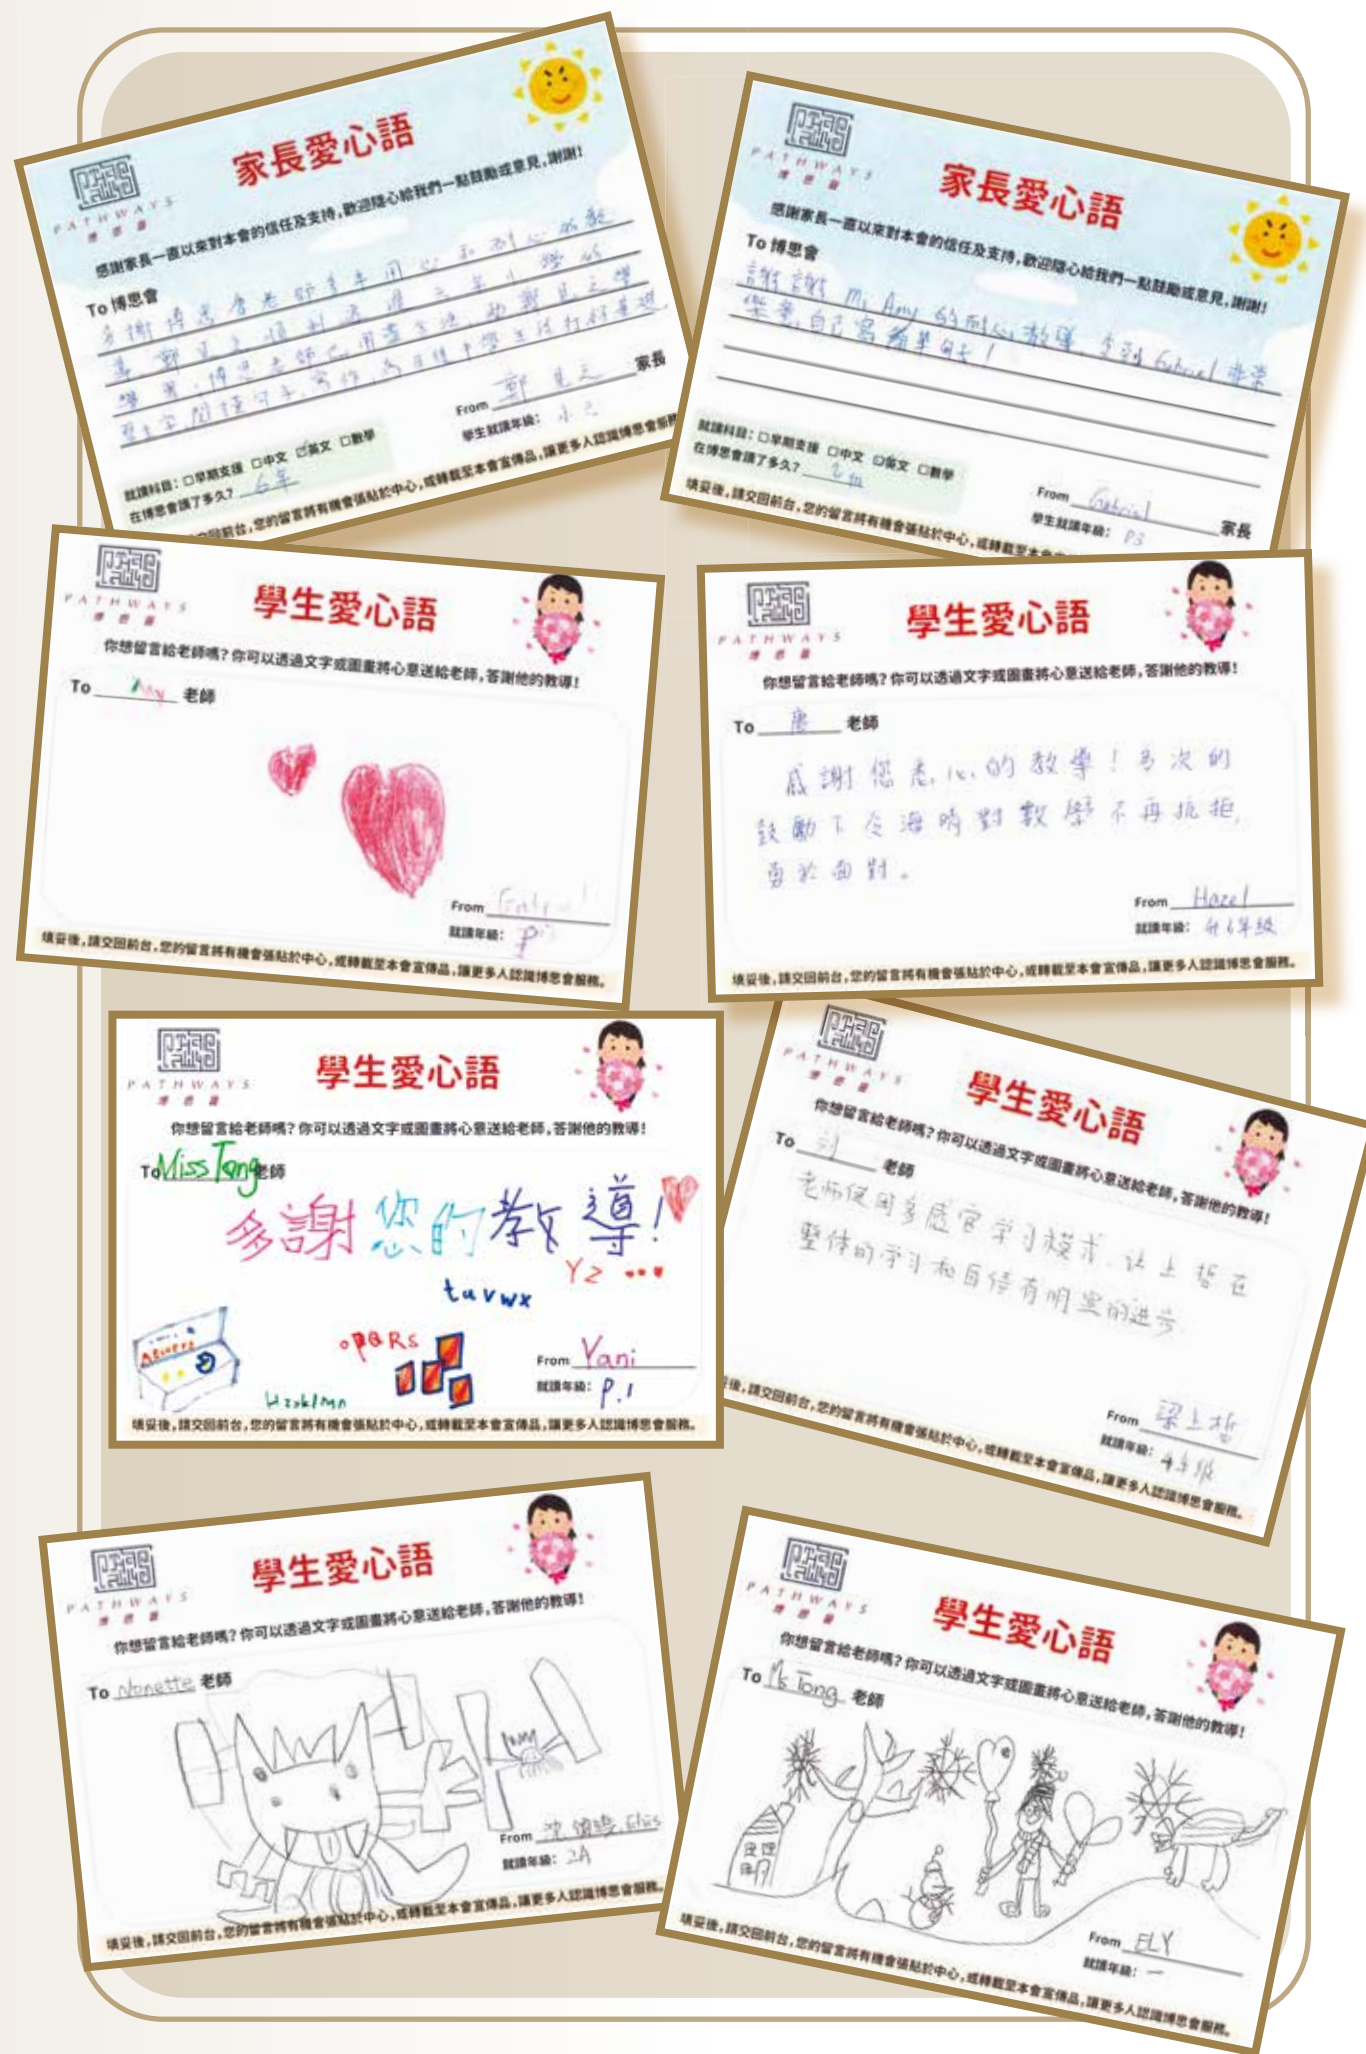 PATHWAYS
博思會
家長愛心語
感謝家長一直以來對本會的信任及支持,歡迎隨心給我們一點鼓勵或意見,謝謝!
To 博思會
多謝博思會老師多年用心和耐心的教
導,鄭見之順利過渡六年小學的
學習,博思老師也用盡方法,助鄭見之學
習生字,閱讀句子,寫作,為升讀中學生活打好基礎.
From 鄭見之 家長
學生就讀年級: 小六
就讀科目: □早期支援 □中文 ☑英文 □數學
在博思會讀了多久? 6年
交回前台,您的留言將有機會張貼於中心,或轉載至本會宣傳品,讓更多人認識博思會服務
PATHWAYS
博思會
家長愛心語
感謝家長一直以來對本會的信任及支持,歡迎隨心給我們一點鼓勵或意見,謝謝!
To 博思會
謝謝 Ms Amy 的耐心教導,令到 Gabriel 非常
,自己寫簡單句子!
就讀科目: □早期支援 □中文 ☑英文 □數學
在博思會讀了多久?
From Gabriel 家長
學生就讀年級: P3
填妥後,請交回前台,您的留言將有機會張貼於中心,或轉載至本會
PATHWAYS
博思會
學生愛心語
你想留言給老師嗎?你可以透過文字或圖畫將心意送給老師,答謝他的教導!
To Amy 老師
From Gabriel
就讀年級: P3
填妥後,請交回前台,您的留言將有機會張貼於中心,或轉載至本會宣傳品,讓更多人認識博思會服務。
PATHWAYS
博思會
學生愛心語
你想留言給老師嗎?你可以透過文字或圖畫將心意送給老師,答謝他的教導!
To 唐 老師
感謝您悉心的教導!多次的
鼓勵下令海晴對數學不再抗拒,
勇於面對。
From Hazel
就讀年級: 升6年級
填妥後,請交回前台,您的留言將有機會張貼於中心,或轉載至本會宣傳品,讓更多人認識博思會服務。
PATHWAYS
博思會
學生愛心語
你想留言給老師嗎?你可以透過文字或圖畫將心意送給老師,答謝他的教導!
To Miss Tong 老師
多謝您的教導!
YZ
tuvwx
opQRS
From Yani
就讀年級: P.1
填妥後,請交回前台,您的留言將有機會張貼於中心,或轉載至本會宣傳品,讓更多人認識博思會服務。
PATHWAYS
博思會
學生愛心語
你想留言給老師嗎?你可以透過文字或圖畫將心意送給老師,答謝他的教導!
To 刘 老師
老师使用多感官学习模式,让上哲在
整体的学习和自信有明显的进步.
From 梁上哲
就讀年級: 4年级
後,請交回前台,您的留言將有機會張貼於中心,或轉載至本會宣傳品,讓更多人認識博思會服務。
PATHWAYS
博思會
學生愛心語
你想留言給老師嗎?你可以透過文字或圖畫將心意送給老師,答謝他的教導!
To Nonette 老師
From 沈
就讀年級: 2A
填妥後,請交回前台,您的留言將有機會張貼於中心,或轉載至本會宣傳品,讓更多人認識博思會服務。
PATHWAYS
博思會
學生愛心語
你想留言給老師嗎?你可以透過文字或圖畫將心意送給老師,答謝他的教導!
To Ms Tong 老師
From ELY
就讀年級: 一
填妥後,請交回前台,您的留言將有機會張貼於中心,或轉載至本會宣傳品,讓更多人認識博思會服務。